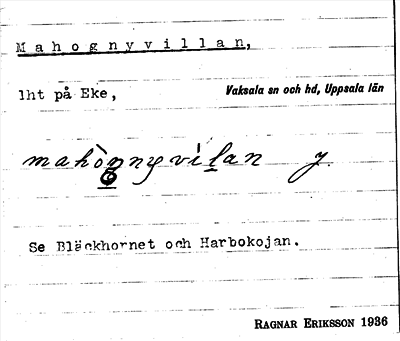 Mahognyvillan,
lht på Eke,
Vaksala sn och hd, Uppsala län
mahògnyvílan y.
Se Bläckhornet och Harbokojan.
RAGNAR ERIKSSON 1936